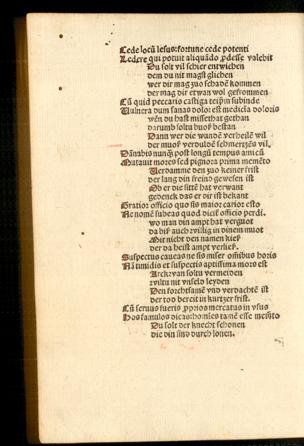 Cede locū lesus: fortune cede potenti
Ledere qui potuit aliquādo ꝓdesse valebit
Du solt vil schier entwichen
dem du nit magst glichen
wer dir mag zuo schadē kommen
der mag dir etwan wol gefrommen
Cū quid peccaris castiga teip̄m subinde
Vulnera dum sanas dolor est medicīa doloris
wēn du hast missethat gethan
darumb soltu buoß bestan
Dann wer die wunde verheilē wil
der muoß verduldē schmertzēs vil
Dānabis nunq̄ post longū tempus amicū
Mutauit mores sed pignora prima memēto
Verdamme den zuo keiner frist
der lang din freind gewesen ist
Ob er die sittē hat verwant
gedenck das er dir ist bekant
Gratior officio quo sis maior carior esto
Ne nomē subeas quod dicit officio perdi.
wo man din ampt hat verguot
da biß auch zvilig in dinem muot
Mit nicht den namen kieß
der da heist ampt verließ.
Suspectus caueas ne sis miser omnibus horis
Nā timidis et suspectis aptissima mors est
Arckwan soltu vermeiden
zvltu nit vnseld leyden
Den forchtsamē vnd verdachtē ist
der tod bereit in kurtzer frist.
Cū seruus fueris ꝓprios mercatus in vsus
Hos famulos dicas hoīes tamē esse memēto
Du solt der knecht schonen
die din sind durch lonen.